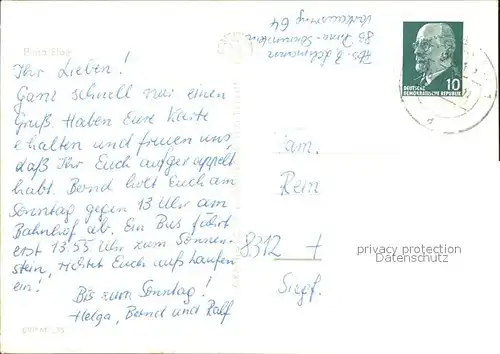 Ihr Lieben!
Ganz schnell nur einen
Gruß. Haben Eure Karte
erhalten und freuen uns,
daß Ihr Euch aufgerappelt
habt. Bernd holt Euch am
Sonntag gegen 13 Uhr am
Bahnhof ab. Ein Bus fährt
erst 13.55 Uhr zum Sonnen-
stein, richtet Euch aufs Laufen
ein!
Bis zum Sonntag!
Helga, Bernd und Ralf
Abs. Lehmann
83 Pirna-Sonnenstein
64
10
DEUTSCHE
DEMOKRATISCHE REPUBLIK
Fam.
Rein
8312
Siegf.
privacy protection
Datenschutz